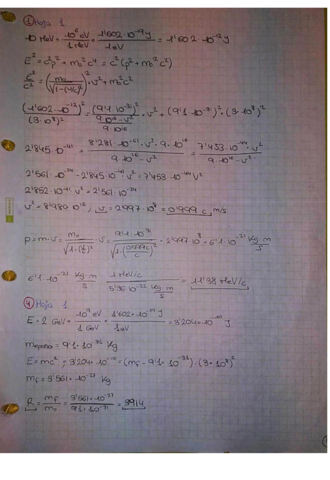 ① Hoja 1
10 MeV · 10⁶ eV / 1 MeV · 1'602·10⁻¹⁹ J / 1 eV = 1'602·10⁻¹² J
E² = c²p² + m₀²c⁴ = c²(p² + m₀²c²)
E²/c² = (m₀/√(1-(v/c)²))² · v² + m₀²c²
(1'602·10⁻¹²)²/(3·10⁸)² = (9'1·10⁻³¹)²/((9·10¹⁶-v²)/(9·10¹⁶)) · v² + (9'1·10⁻³¹)² · (3·10⁸)²
2'845·10⁻⁴¹ = 8'281·10⁻⁶¹·v²·9·10¹⁶/(9·10¹⁶-v²) = 7'453·10⁻⁴⁴·v²/(9·10¹⁶-v²)
2'561·10⁻²⁴ - 2'845·10⁻⁴¹ v² = 7'453·10⁻⁴⁴ v²
2'852·10⁻⁴¹ v² = 2'561·10⁻²⁴
v² = 8'980·10¹⁶, v = 2'997·10⁸ = 0'999 c m/s
p = m·v = m₀/√(1-(v/c)²) · v = 9'1·10⁻³¹/√(1-(0'999c/c)²) · 2'997·10⁸ = 6'1·10⁻²¹ kg m/s
6'1·10⁻²¹ kg·m/s · 1 MeV/c / 5'36·10⁻²² kg m/s = 11'38 MeV/c
④ Hoja 1
E = 2 GeV · 10⁹ eV / 1 GeV · 1'602·10⁻¹⁹ J / 1 eV = 3'204·10⁻¹⁰ J
m reposo = 9'1·10⁻³¹ kg
E = mc² = 3'204·10⁻¹⁰ = (mf - 9'1·10⁻³¹)·(3·10⁸)²
mf = 3'561·10⁻²⁷ kg
R = mf/m₀ = 3'561·10⁻²⁷/9'1·10⁻³¹ = 3914